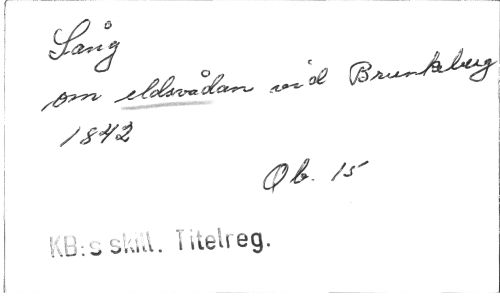 Sång
om eldsvådan vid Brunkeberg
1842
Ob. 15
KB:s skill. Titelreg.